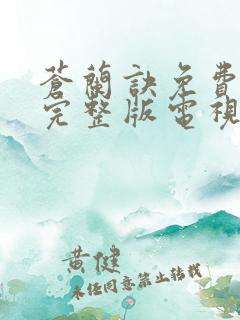 蒼蘭訣免費
完整版電視
黄健
未经同意禁止转载